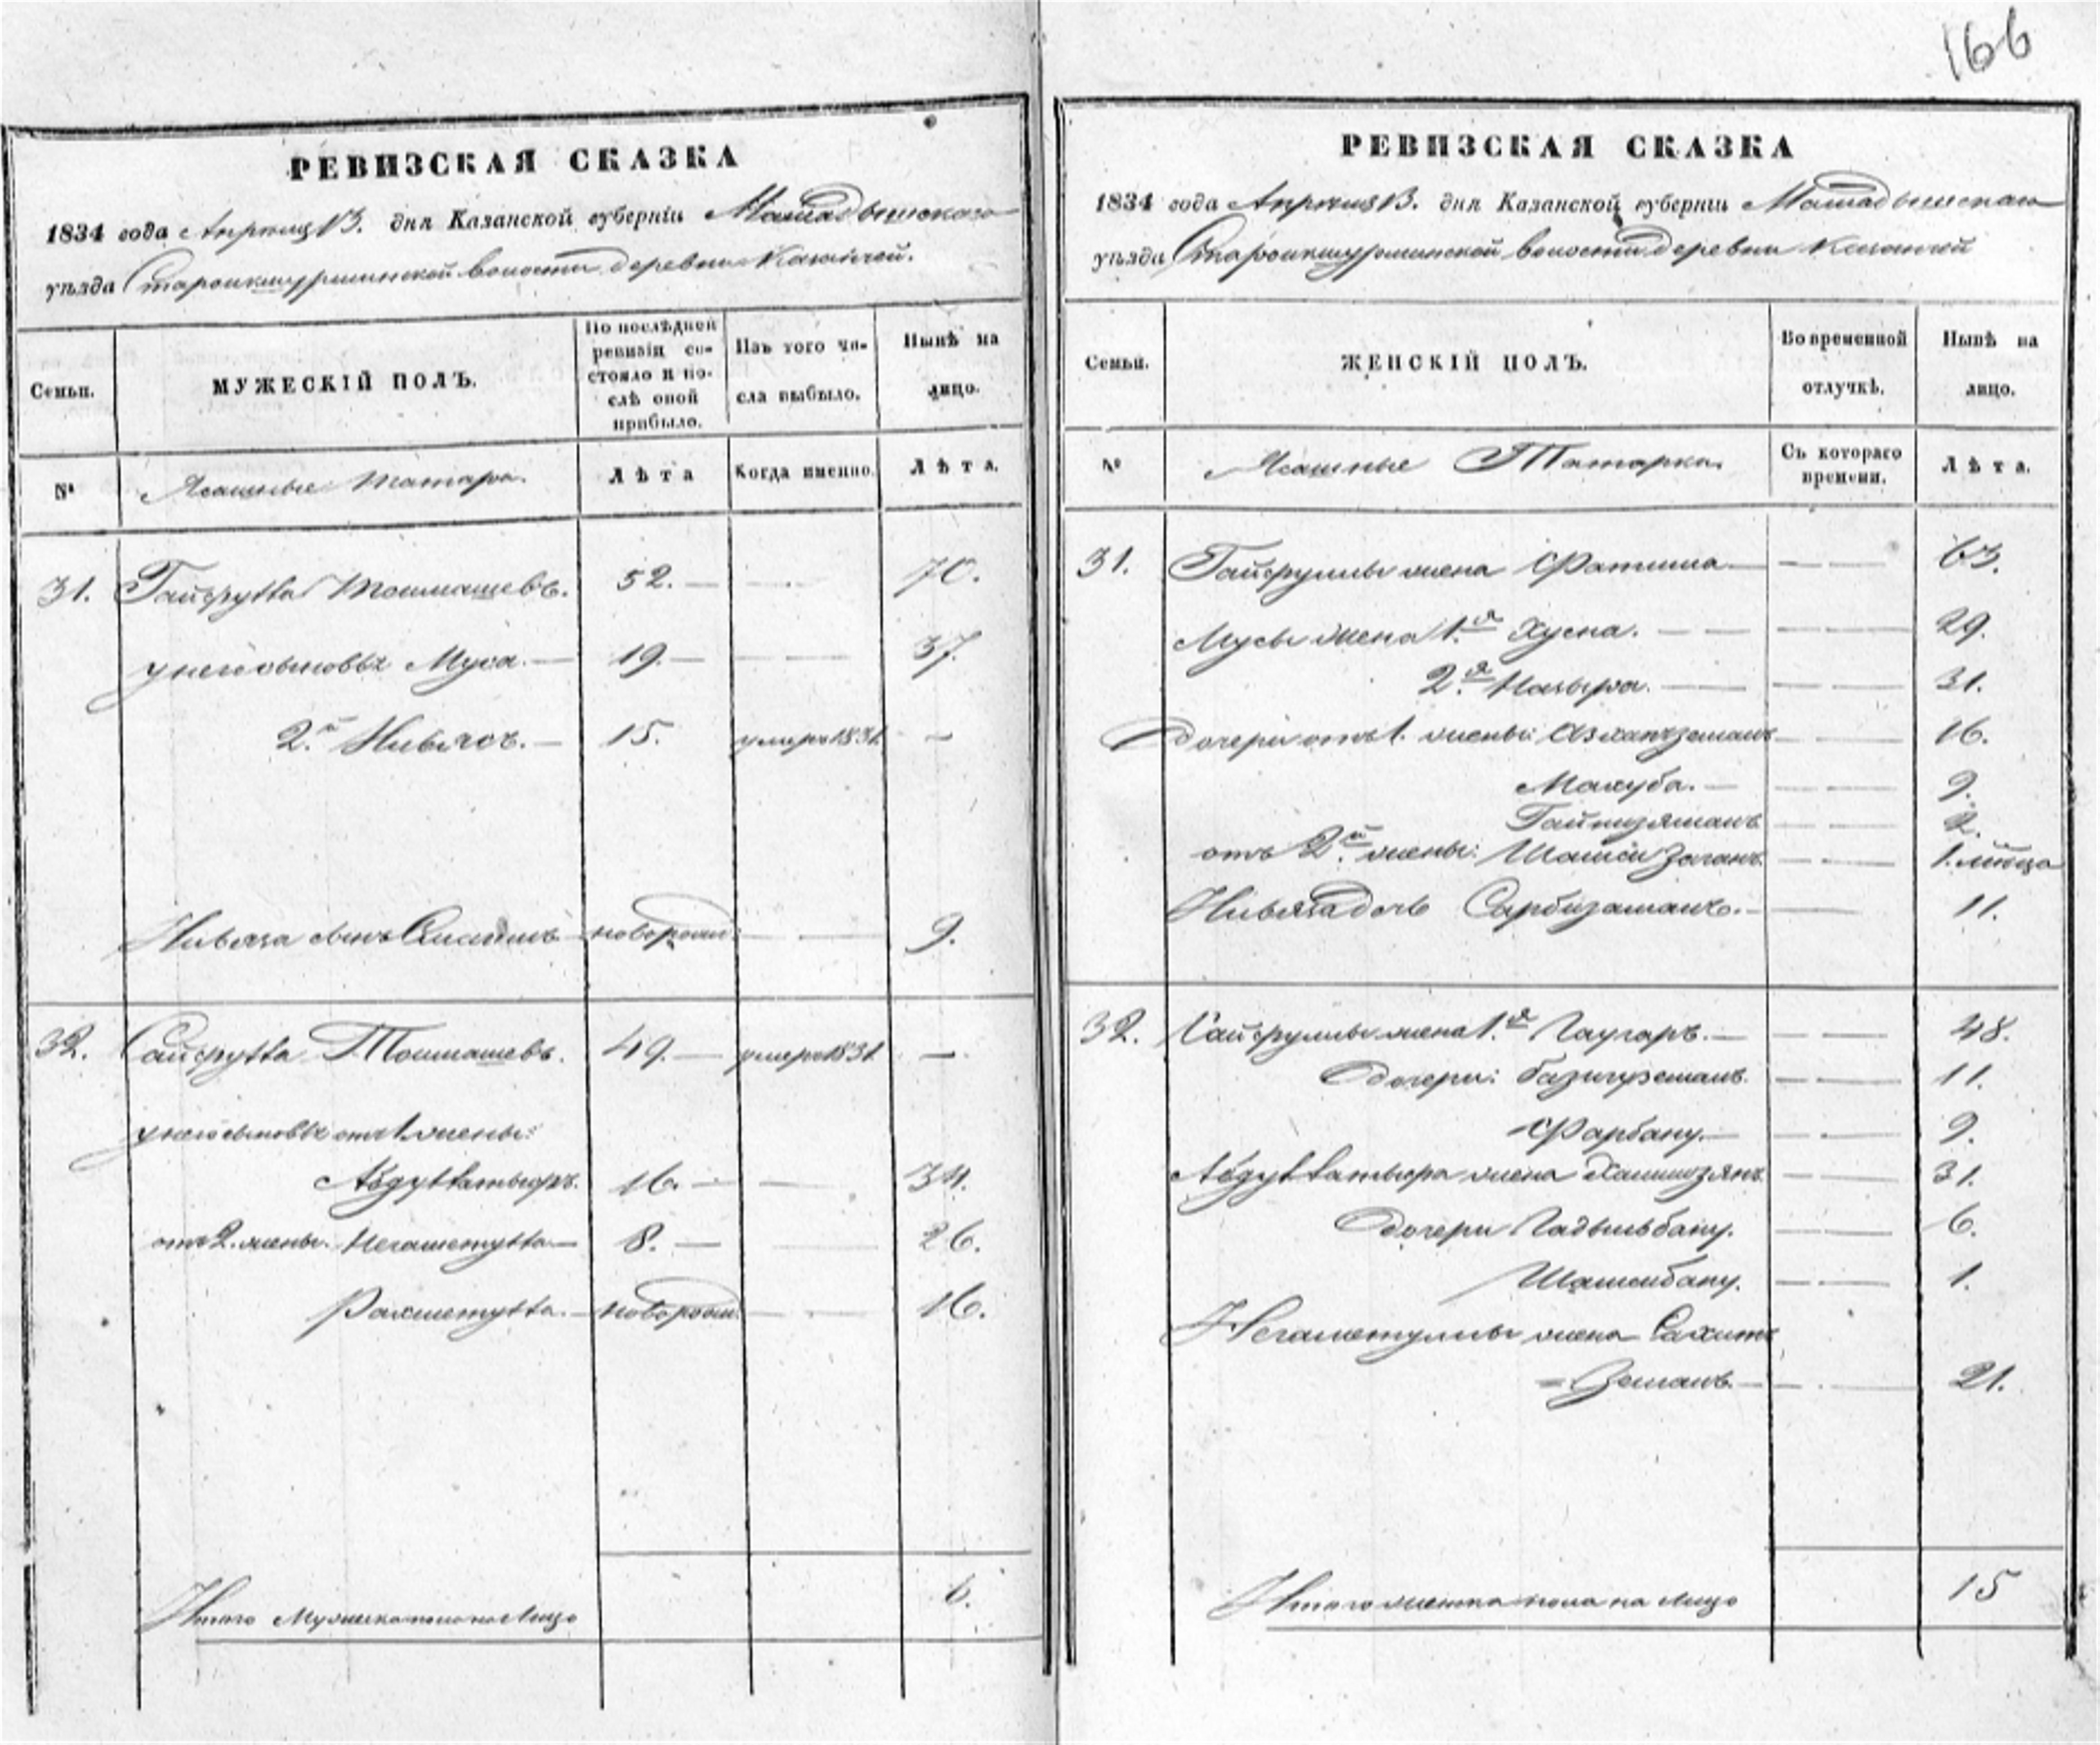 166
РЕВИЗСКАЯ СКАЗКА
1834 года Апреля 13. дня Казанской губерніи Мамадышскаго
уѣзда Староикшурминской волости деревни
Семьи.
МУЖЕСКІЙ ПОЛЪ.
По послѣдней ревизіи состояло и послѣ оной прибыло.
Изъ того числа выбыло.
Нынѣ на лицо.
№
Ясашные татара.
Лѣта
Когда именно.
Лѣта.
31. Гайфулла Тошмашевъ. 52. — — 70.
у него сыновья Муса. — 19. — — 37.
2.й Ниьязъ. — 15. умеръ 1831. —
Ниьяза сынъ новорожд. — 9.
32. Сайфулла Тошмашевъ. 49. — умеръ 1831. —
у него сыновья отъ 1 жены:
Абдуллатыфъ. 16. — — 34.
отъ 2. жены. Негаметулла — 8. — — 26.
Рахметулла. — новорожд. — 16.
Итого Мужеска пола на Лицо 6.
РЕВИЗСКАЯ СКАЗКА
1834 года Апреля 13. дня Казанской губерніи Мамадышскаго
уѣзда Староикшурминской волости деревни
Семьи.
ЖЕНСКІЙ ПОЛЪ.
Во временной отлучкѣ.
Нынѣ на лицо.
№
Ясашные Татарки.
Съ котораго времени.
Лѣта.
31. Гайфуллы жена Фатима — — — 63.
Мусы жена 1.я Хусна. — — — 29.
2.я — — — 31.
Дочери отъ 1. жены: — — 16.
Махуба. — — — 9.
Гайнизяманъ — — 2.
отъ 2.й жены: Шамси — — 1. мѣсяца
Ниьяза дочь Сарбизаманъ. — — 11.
32. Сайфуллы жена 1.я Гаугаръ. — — — 48.
Дочери: — — 11.
Фарбану. — — — 9.
Абдуллатыфа жена — — 31.
Дочери Гадыльбану. — — 6.
Шамсибану. — — 1.
Негаметуллы жена Сахип
= Земанъ. — — — 21.
Итого женска пола на лицо 15